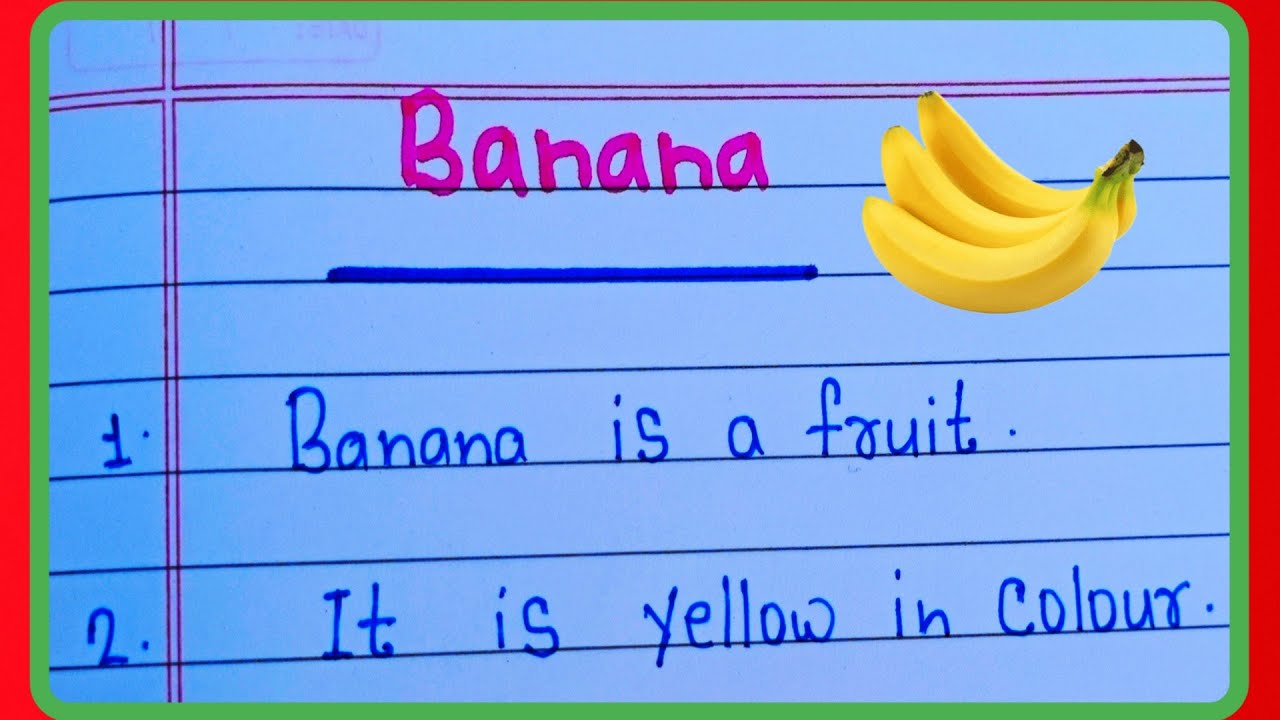 Banana
1. Banana is a fruit.
2. It is yellow in colour.